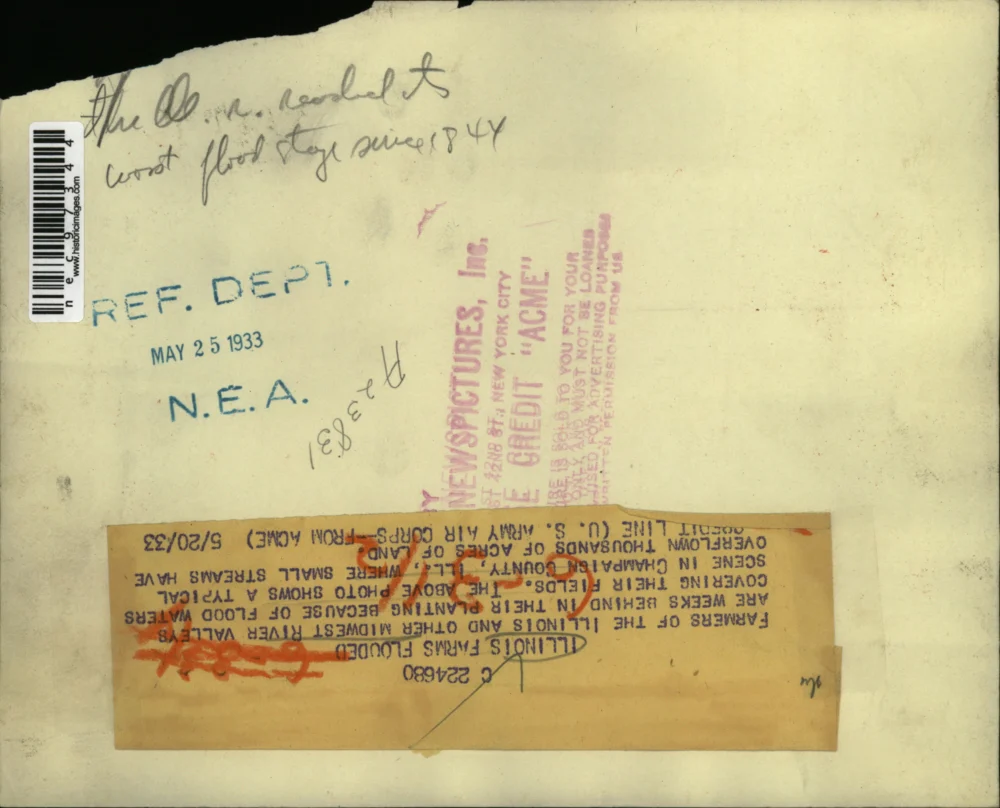 the O. R. reached its
worst flood stage since 1844
nec97344
www.historicimages.com
REF. DEPT.
MAY 25 1933
N.E.A.
A23831
NEWSPICTURES, Inc.
42ND ST., NEW YORK CITY
CREDIT "ACME"
IS SOLD TO YOU FOR YOUR
ONLY AND MUST NOT BE LOANED
USED FOR ADVERTISING PURPOSES
WRITTEN PERMISSION FROM US
C 224680
ILLINOIS FARMS FLOODED
FARMERS OF THE ILLINOIS AND OTHER MIDWEST RIVER VALLEYS
ARE WEEKS BEHIND IN THEIR PLANTING BECAUSE OF FLOOD WATERS
COVERING THEIR FIELDS. THE ABOVE PHOTO SHOWS A TYPICAL
SCENE IN CHAMPAIGN COUNTY, ILL., WHERE SMALL STREAMS HAVE
OVERFLOWN THOUSANDS OF ACRES OF LAND.
CREDIT LINE (U. S. ARMY AIR CORPS--FROM ACME) 5/20/33